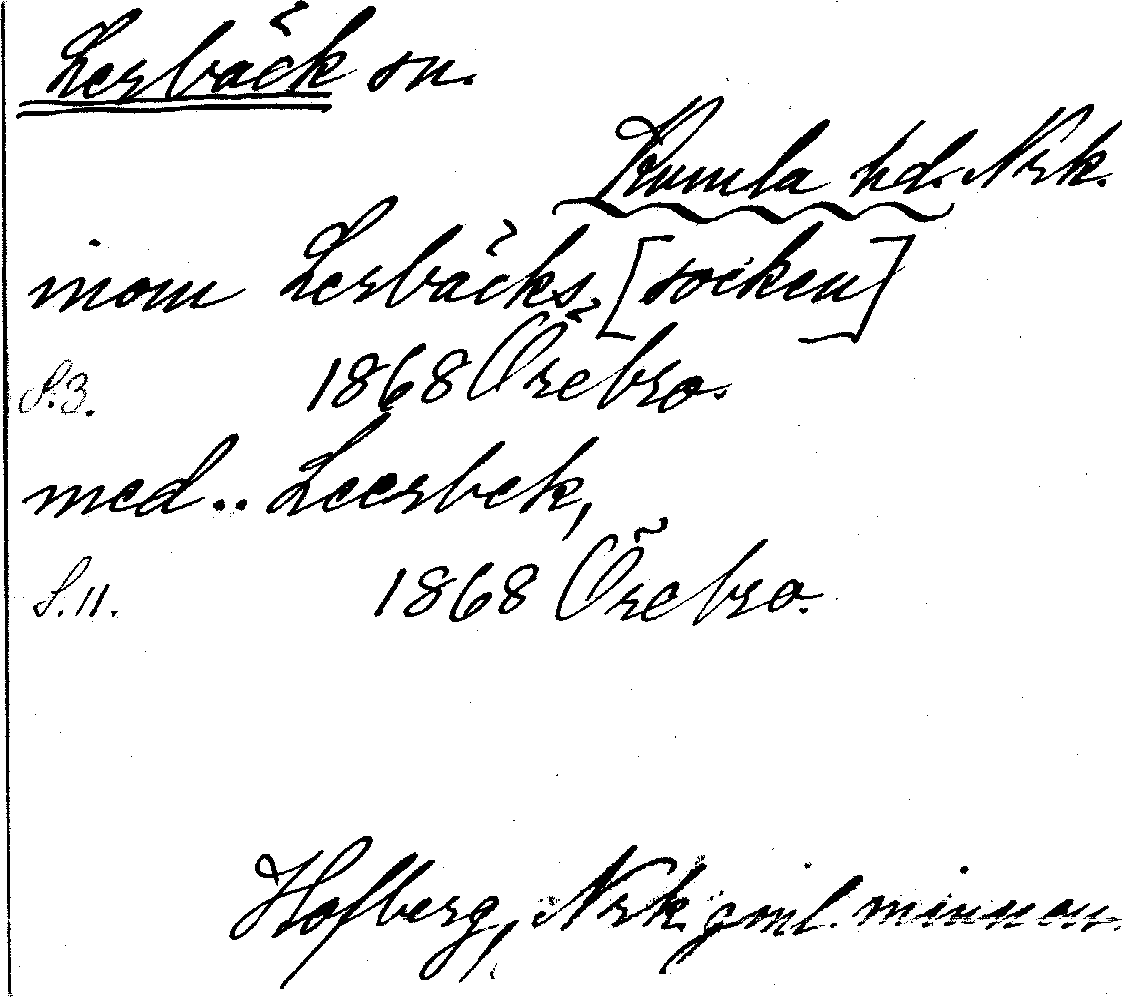 Lerbäck sn.
Kumla hd. Nrk.
inom Lerbäcks. [socken]
S.3. 1868 Örebro.
med.. Leerbek,
S.11. 1868 Örebro.
Hofberg, Nrk. gml. minnen.